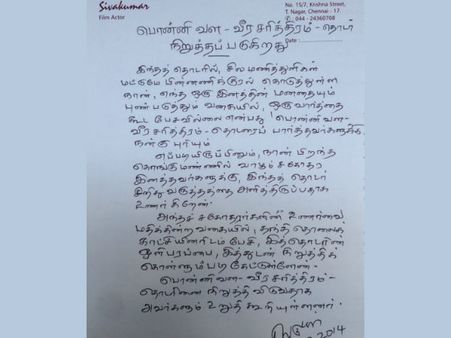 Sivakumar
Film Actor
No. 15/7, Krishna Street,
T. Nagar, Chennai - 17.
044 - 24360708
Date :
பொன்னி வள - வீர சரித்திரம் - தொடர்
நிறுத்தப் படுகிறது
இந்தத் தொடரில், சில மணித்துளிகள்
மட்டுமே பின்னணிக்குரல் கொடுத்துள்ள
நான், எந்த ஒரு இனத்தின் மனதையும்
புண்படுத்தும் வகையில், ஒரு வார்த்தை
கூட பேசவில்லை என்பது 'பொன்னி வள-
வீர சரித்திரம் - தொடரைப் பார்த்தவர்களுக்கு
நன்கு புரியும்
எப்படியிருப்பினும், நான் பிறந்த
கொங்குமண்ணில் வாழும் சகோதர
இனத்தவர்களுக்கு, இந்தத் தொடர்
சிறிது வருத்தத்தை அளித்திருப்பதாக
உணர்கிறேன்.
அந்தச் சகோதரர்களின் உணர்வை
மதிக்கின்ற வகையில், தந்தி தொலைக்
காட்சியினரிடம் பேசி, இத்தொடரின்
ஒளிபரப்பை, இத்துடன் நிறுத்திக்
கொள்ளும்படி கேட்டுள்ளேன்.
பொன்னி வள - வீர சரித்திரம் -
தொடரினை நிறுத்தி விடுவதாக
அவர்களும் உறுதி கூறியுள்ளனர்.
2014